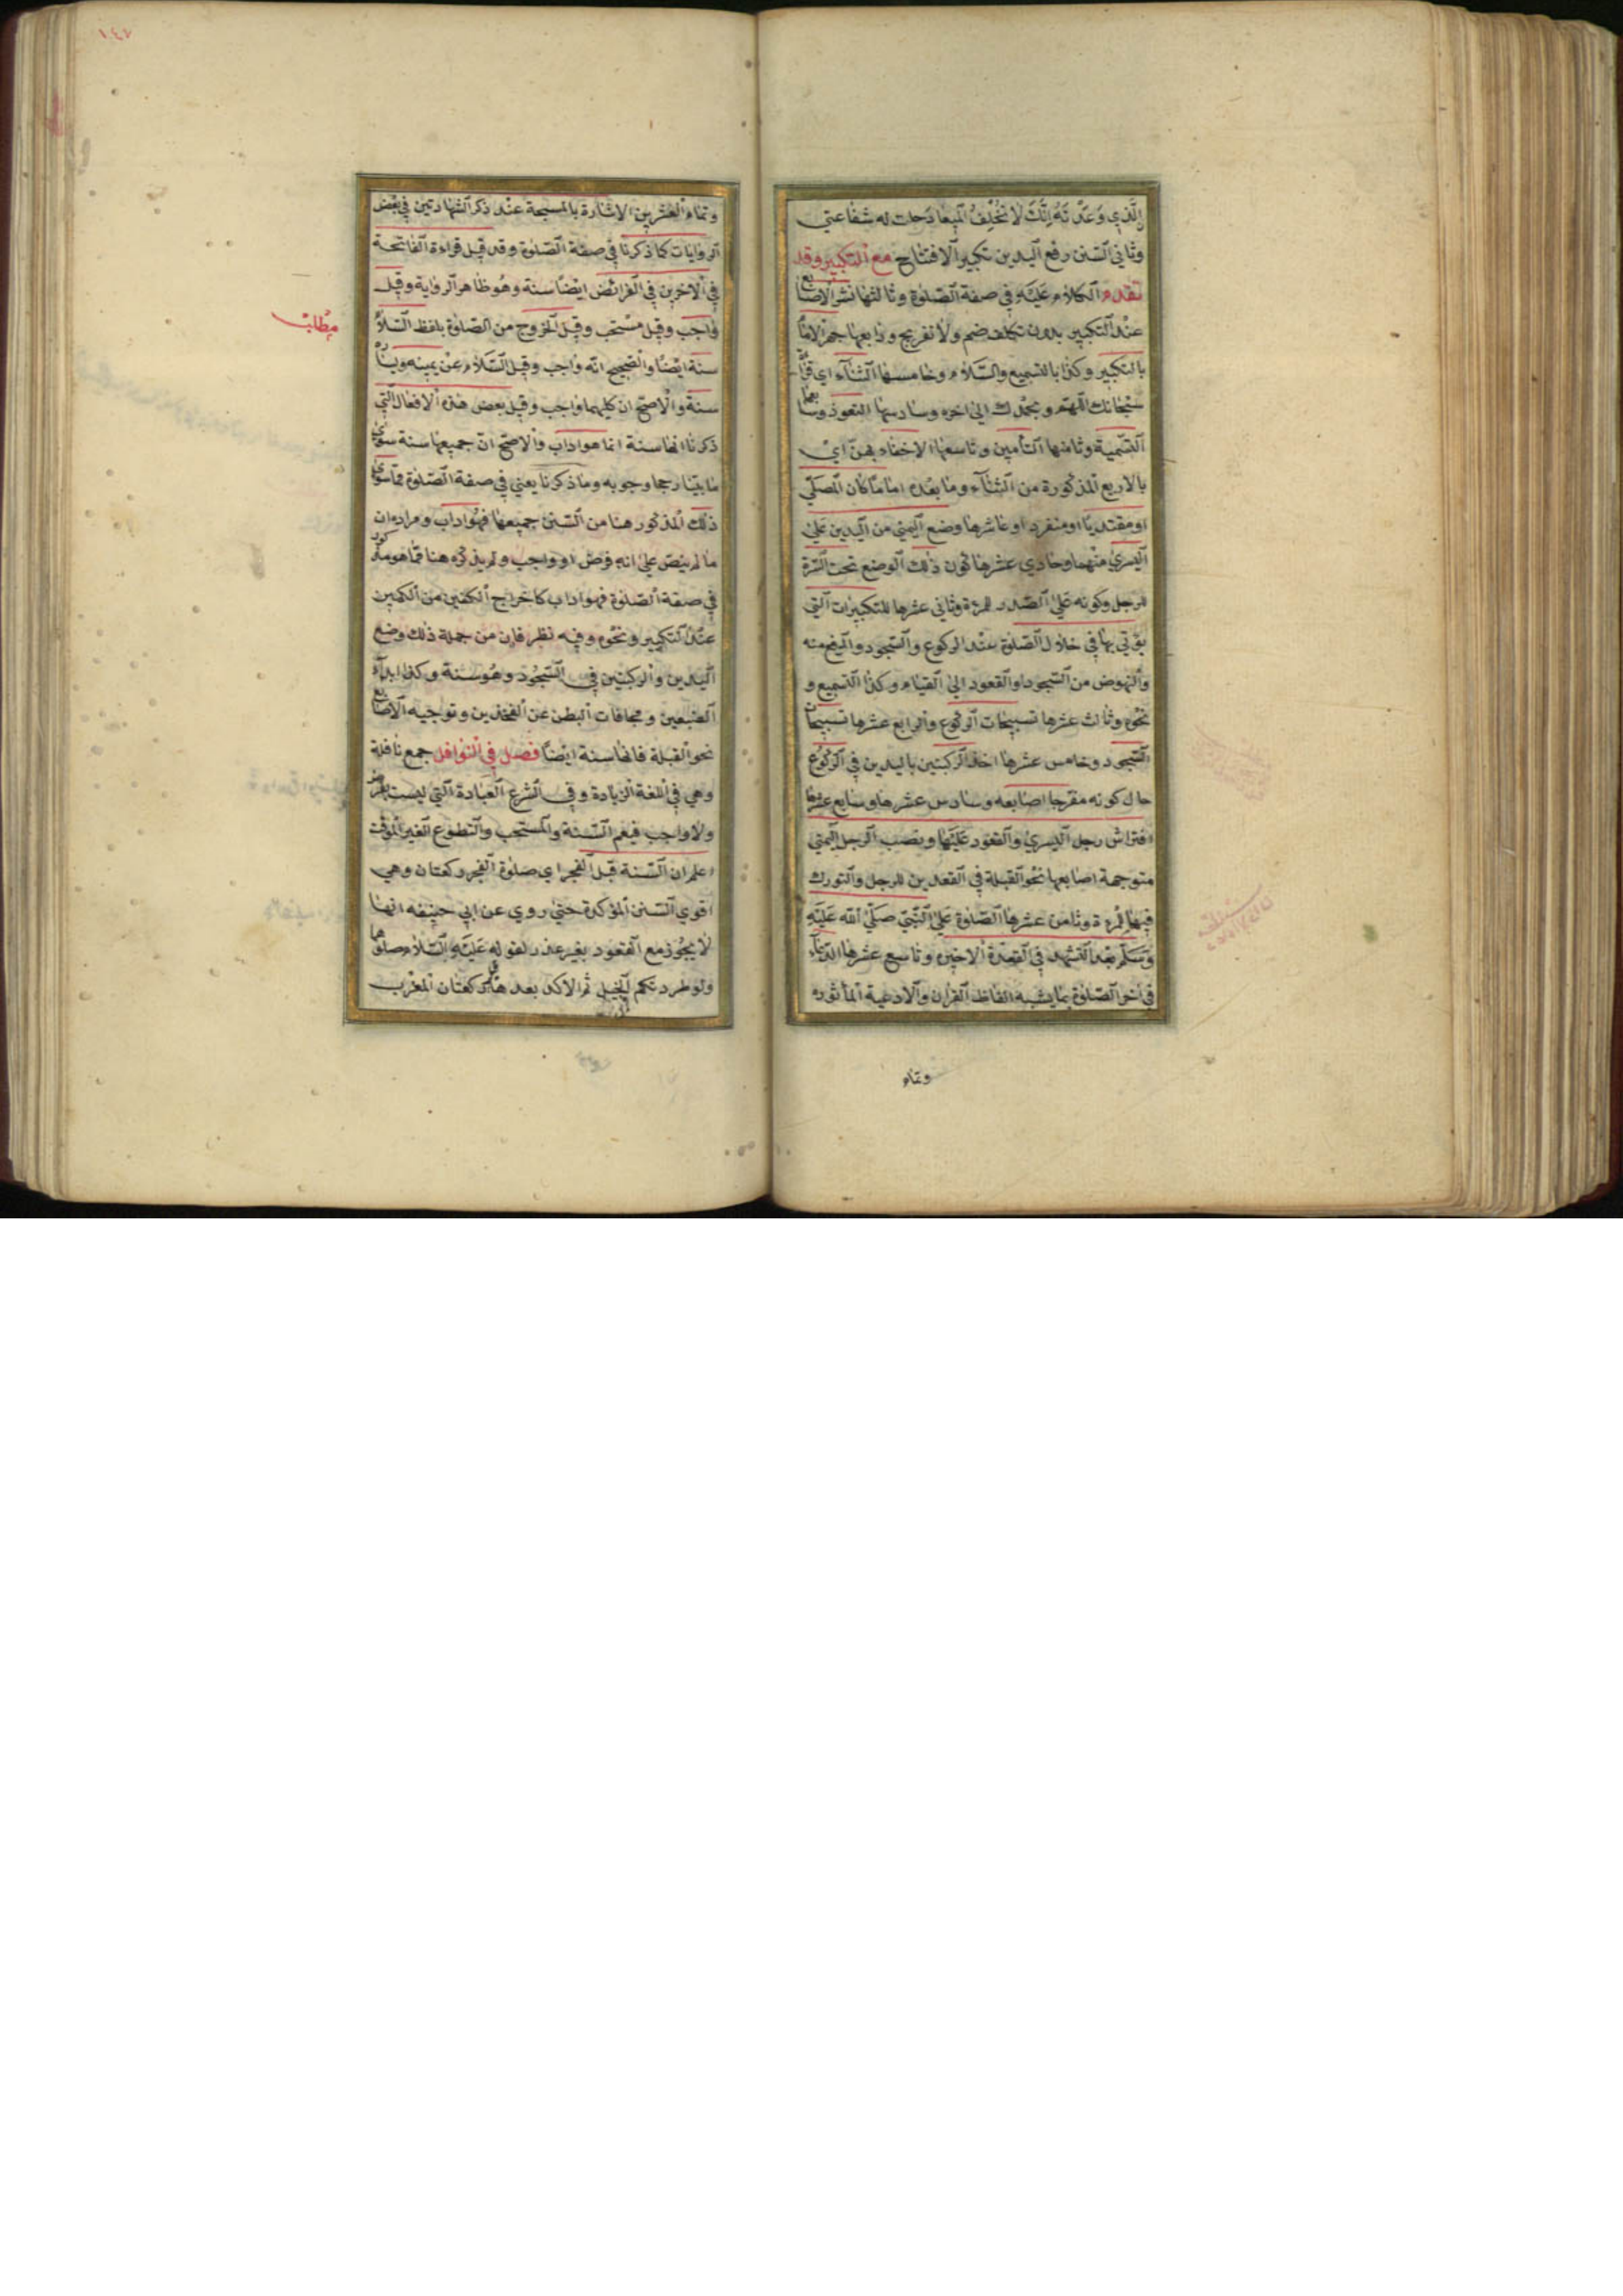 الَّذِي وَعَدْتَهُ اِنَّكَ لَا تُخْلِفُ الْمِيعَادَ حلت له شفاعتي
وثاني السنن رفع اليدين تكبير الافتتاح مع التكبير وقد
تقدم الكلام عليه في صفة الصلوة وثالثها نشر الاصابع
عند التكبير بدون تكلف ضم ولا تفريج ورابعها جهر الامام
بالتكبير وكذا بالتسميع والسلام وخامسها الثناء اي قراءة
سبحانك اللهم وبحمدك الى اخره وسادسها التعوذ وسابعها
التسمية وثامنها التأمين وتاسعها الاخفاء بهن اي
بالاربع المذكورة من الثناء وما بعده اماما كان المصلي
او مقتديا او منفردا وعاشرها وضع اليمنى من اليدين على
اليسرى منهما وحادي عشرها كون ذلك الوضع تحت السرة
للرجل وكونه على الصدر للمرءة وثاني عشرها للتكبيرات التي
يؤتي بها في خلال الصلوة عند الركوع والسجود والرفع منه
والنهوض من السجود او القعود الى القيام وكذا التسميع و
نحوه وثالث عشرها تسبيحات الركوع والرابع عشرها تسبيحات
السجود وخامس عشرها اخذ الركبتين باليدين في الركوع
حال كونه مفرجا اصابعه وسادس عشرها وسابع عشرها
افتراش رجل اليسرى والقعود عليها ونصب الرجل اليمنى
متوجهة اصابعها نحو القبلة في القعدين للرجل والتورك
فيها للمرءة وثامن عشرها الصلوة على النبي صلى الله عليه
وسلم بعد التشهد في القعدة الاخيرة وتاسع عشرها الدعاء
في اخر الصلوة بما يشبه الفاظ القران والادعية المأثوره
وتمام
١٤٧
وتمام العشرين الاشارة بالمسبحة عند ذكر الشهادتين في بعض
الروايات كما ذكرنا في صفة الصلوة وقد قيل قراءة الفاتحة
في الاخرين في الفرائض ايضا سنة وهو ظاهر الرواية وقيل
واجب وقيل مستحب وقيل الخروج من الصلوة بلفظ السلام
مطلب
سنة ايضا والصحيح انه واجب وقيل السلام عن يمينه ويساره
سنة والاصح ان كليهما واجب وقيل بعض هذه الافعال التي
ذكرنا انها سنة انما هو اداب والاصح ان جميعها سنة سوى
ما بينا رجحا وجوبه وما ذكرنا يعني في صفة الصلوة مما سوى
ذلك المذكور هنا من السنن جميعها فهو اداب ومراده ان
ما لم ينص على انه فرض او واجب ولم يذكره هنا مما هو مذكور
في صفة الصلوة فهو اداب كاخراج الكفين من الكمين
عند التكبير ونحوه وفيه نظر فان من جملة ذلك وضع
اليدين والركبتين في السجود وهو سنة وكذا ابداء
الضبعين ومجافات البطن عن الفخذين وتوجيه الاصابع
نحو القبلة فانها سنة ايضا فصل في النوافل جمع نافلة
وهي في اللغة الزيادة وفي الشرع العبادة التي ليست بفرض
ولا واجب فيعم السنة والمستحب والتطوع الغير الموقت
اعلم ان السنة قبل الفجر اي صلوة الفجر ركعتان وهي
اقوى السنن المؤكدة حتى روي عن ابي حنيفه انها
لا يجوز مع القعود بغير عذر لقوله عليه السلام صلوهما
ولو طردتكم الخيل ثم الاكد بعدها ركعتان المغرب